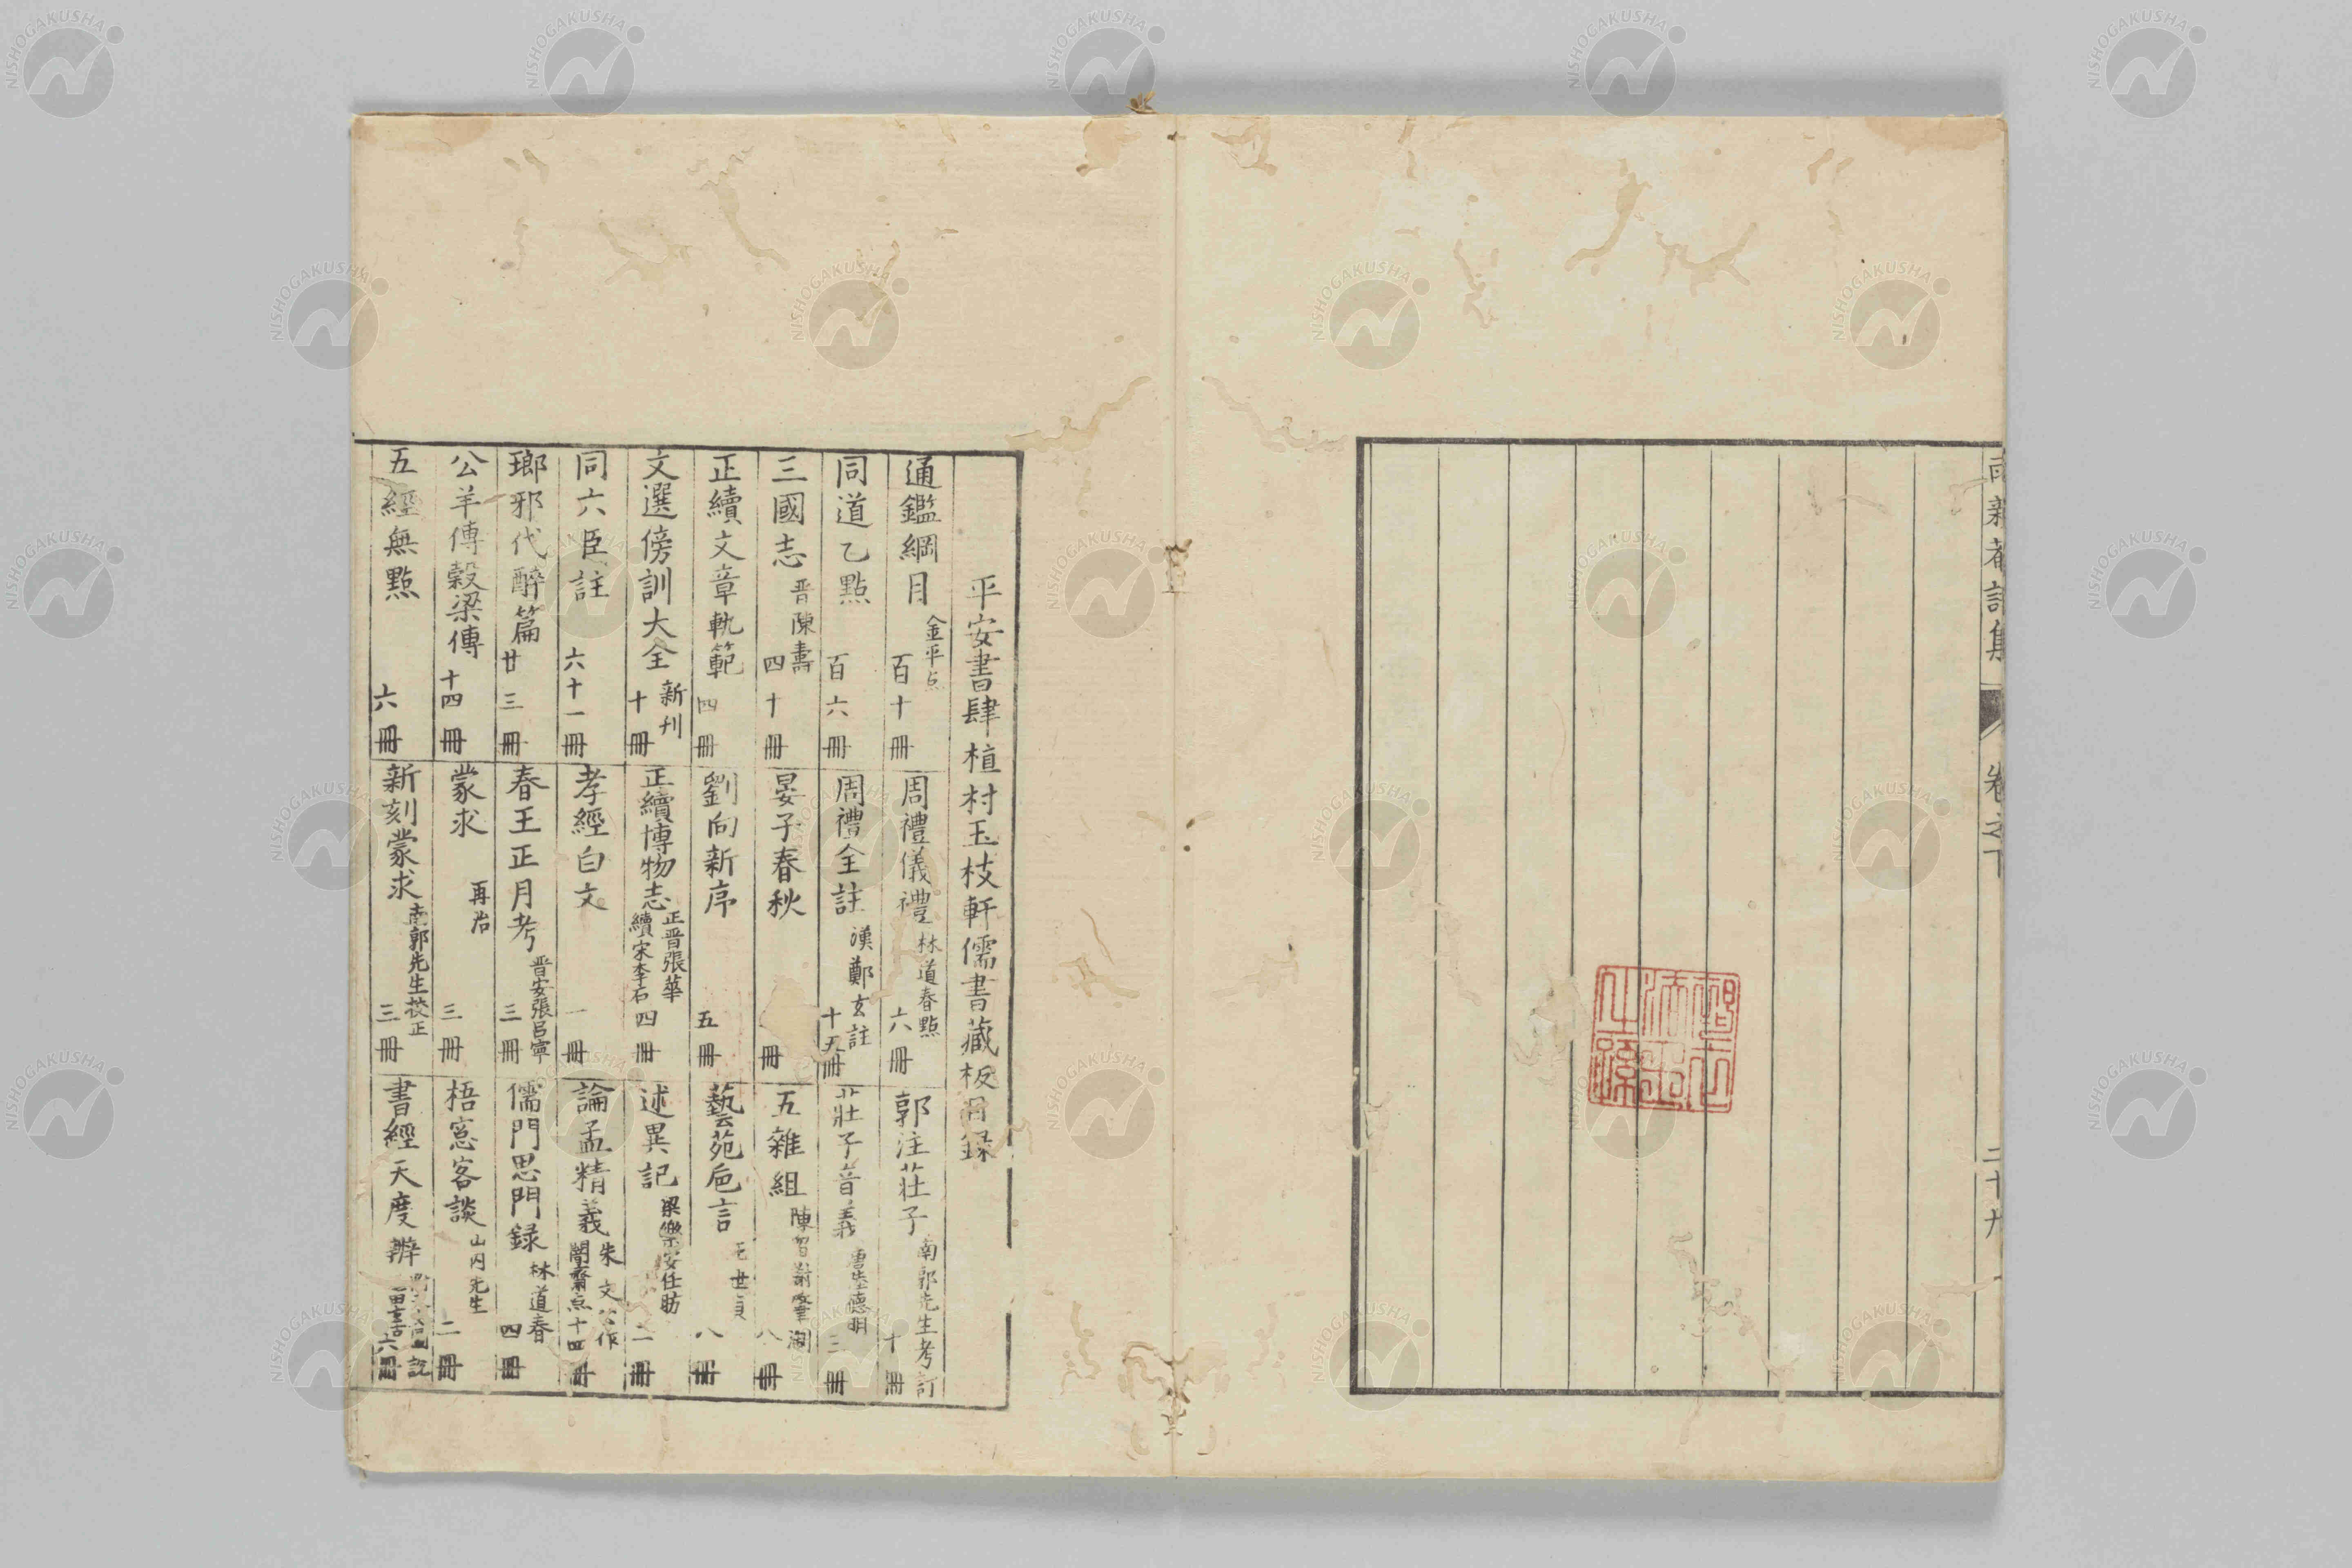 新菴詩集
卷之下
二十九
平安書肆植村玉枝軒儒書藏板目録
通鑑綱目 金平点 百十冊
周禮儀禮 林道春點 六冊
郭注荘子 南郭先生考訂 十冊
同道乙點 百六冊
周禮全註 漢鄭玄註 十五冊
荘子音義 唐陸德明 三冊
三國志 晋陳壽 四十冊
晏子春秋 冊
五雜組 陳留謝肇淛 八冊
正續文章軌範 四冊
劉向新序 五冊
藝苑巵言 王世貞 八冊
文選傍訓大全 新刊 十冊
正續博物志 正晋張華 續宋李石 四冊
述異記 梁樂安任昉 二冊
同六臣註 六十一冊
孝經白文 一冊
論孟精義 朱文公作 闇齋点 十四冊
瑯邪代醉篇 廿三冊
春王正月考 晋安張呂寧 三冊
儒門思問録 林道春 四冊
公羊傳穀梁傳 十四冊
蒙求 再治 三冊
梧窓客談 山内先生 二冊
五經無點 六冊
新刻蒙求 南郭先生挍正 三冊
書經天度辨 六冊
NISHOGAKUSHA